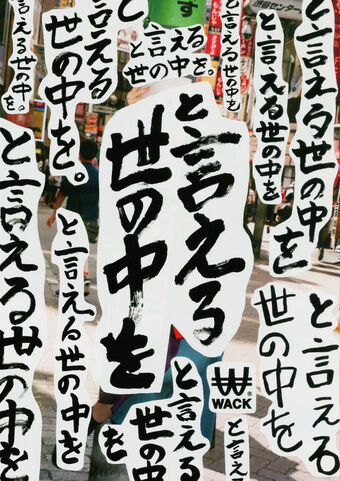 と言える
世の中を
と言える
世の中を。
と言える
世の中を。
と言える
世の中を。
と言える
世の中を
と言える世の中を
と言える世の中を
と言える世の中を
と言える世の中を
と言える
世の中を
と言える
世の中
を
と言え
す
WACK